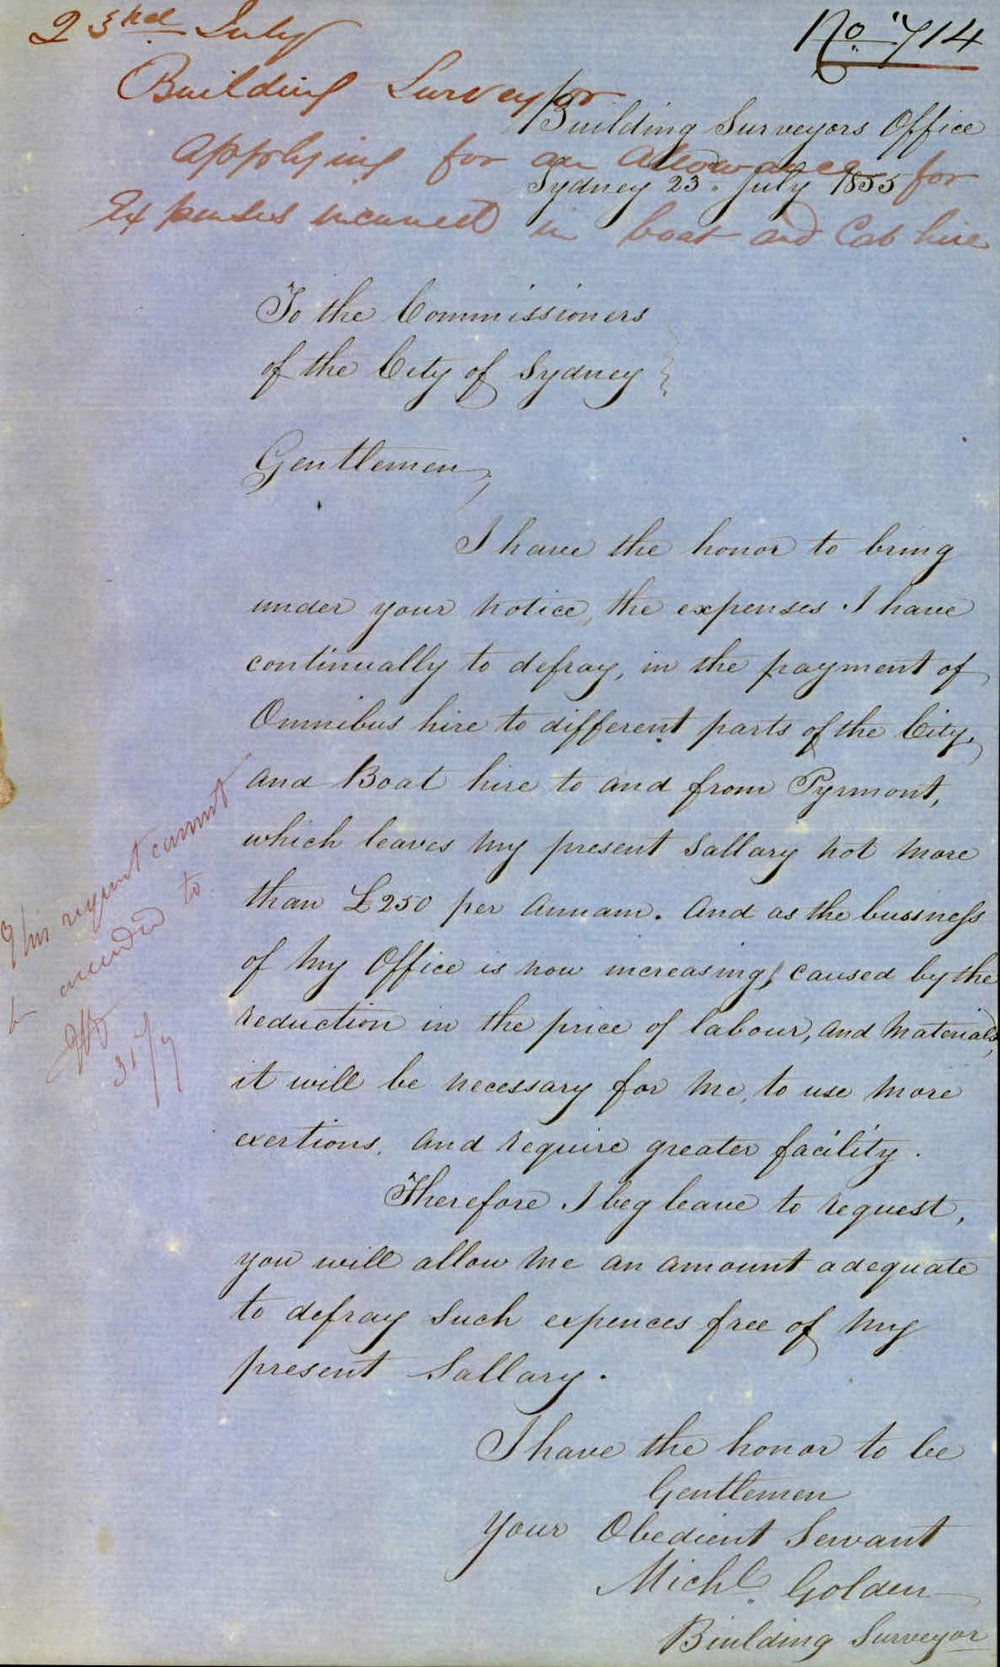 23rd July
No 714
Building Surveyor
applying for an allowance for
Expenses incurred in boat and Cab hire
Building Surveyors Office
Sydney 23. July 1855
To the Commissioners
of the City of Sydney
Gentlemen,
I have the honor to bring
under your notice, the expenses I have
continually to defray, in the payment of
Omnibus hire to different parts of the City,
and Boat hire to and from Pyrmont,
which leaves my present Sallary not more
than £250 per Annum. And as the business
of my Office is now increasing, caused by the
reduction in the price of labour, and Materials,
it will be necessary for me, to use more
exertions, and require greater facility.
Therefore I beg leave to request,
you will allow me an amount adequate
to defray such expences free of my
present Sallary.
I have the honor to be
Gentlemen
Your Obedient Servant
Michl. Golden
Building Surveyor
This request cannot
be acceeded to.
31/7